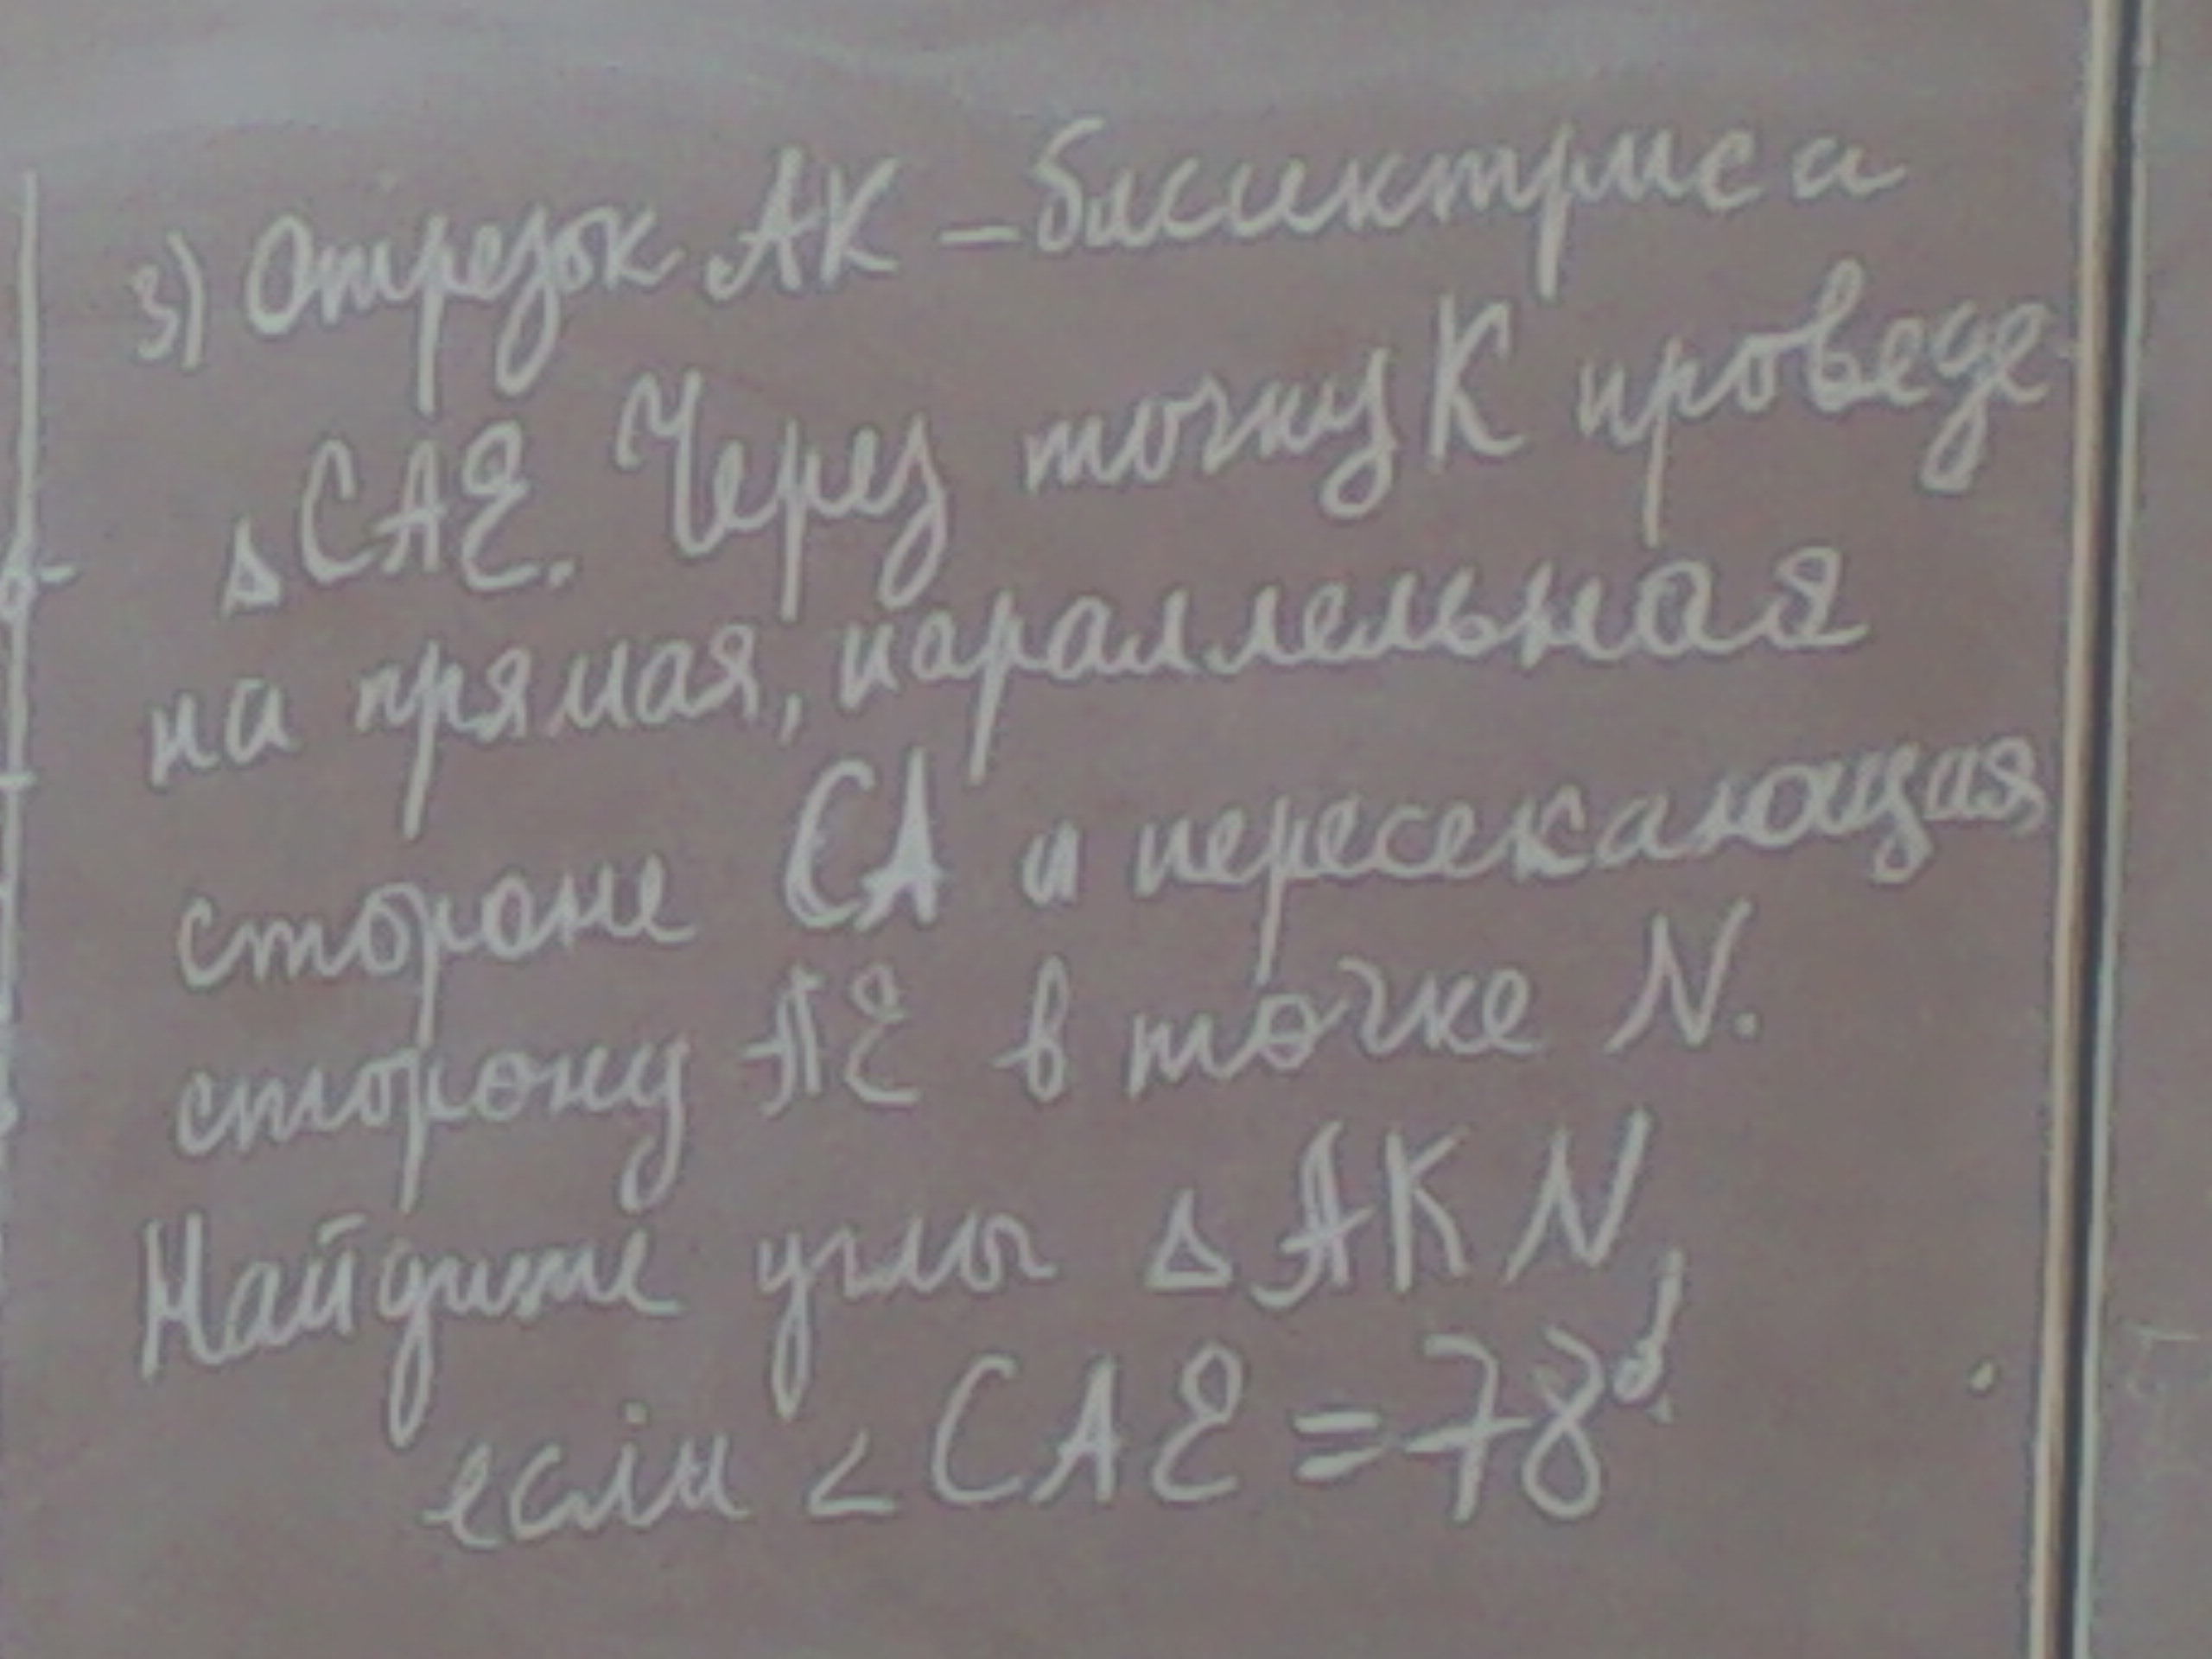 3) Отрезок АК – биссектриса
△ САЕ. Через точку К проведе-
на прямая, параллельная
стороне СА и пересекающая
сторону АЕ в точке N.
Найдите углы △ AKN,
если ∠ САЕ = 78°